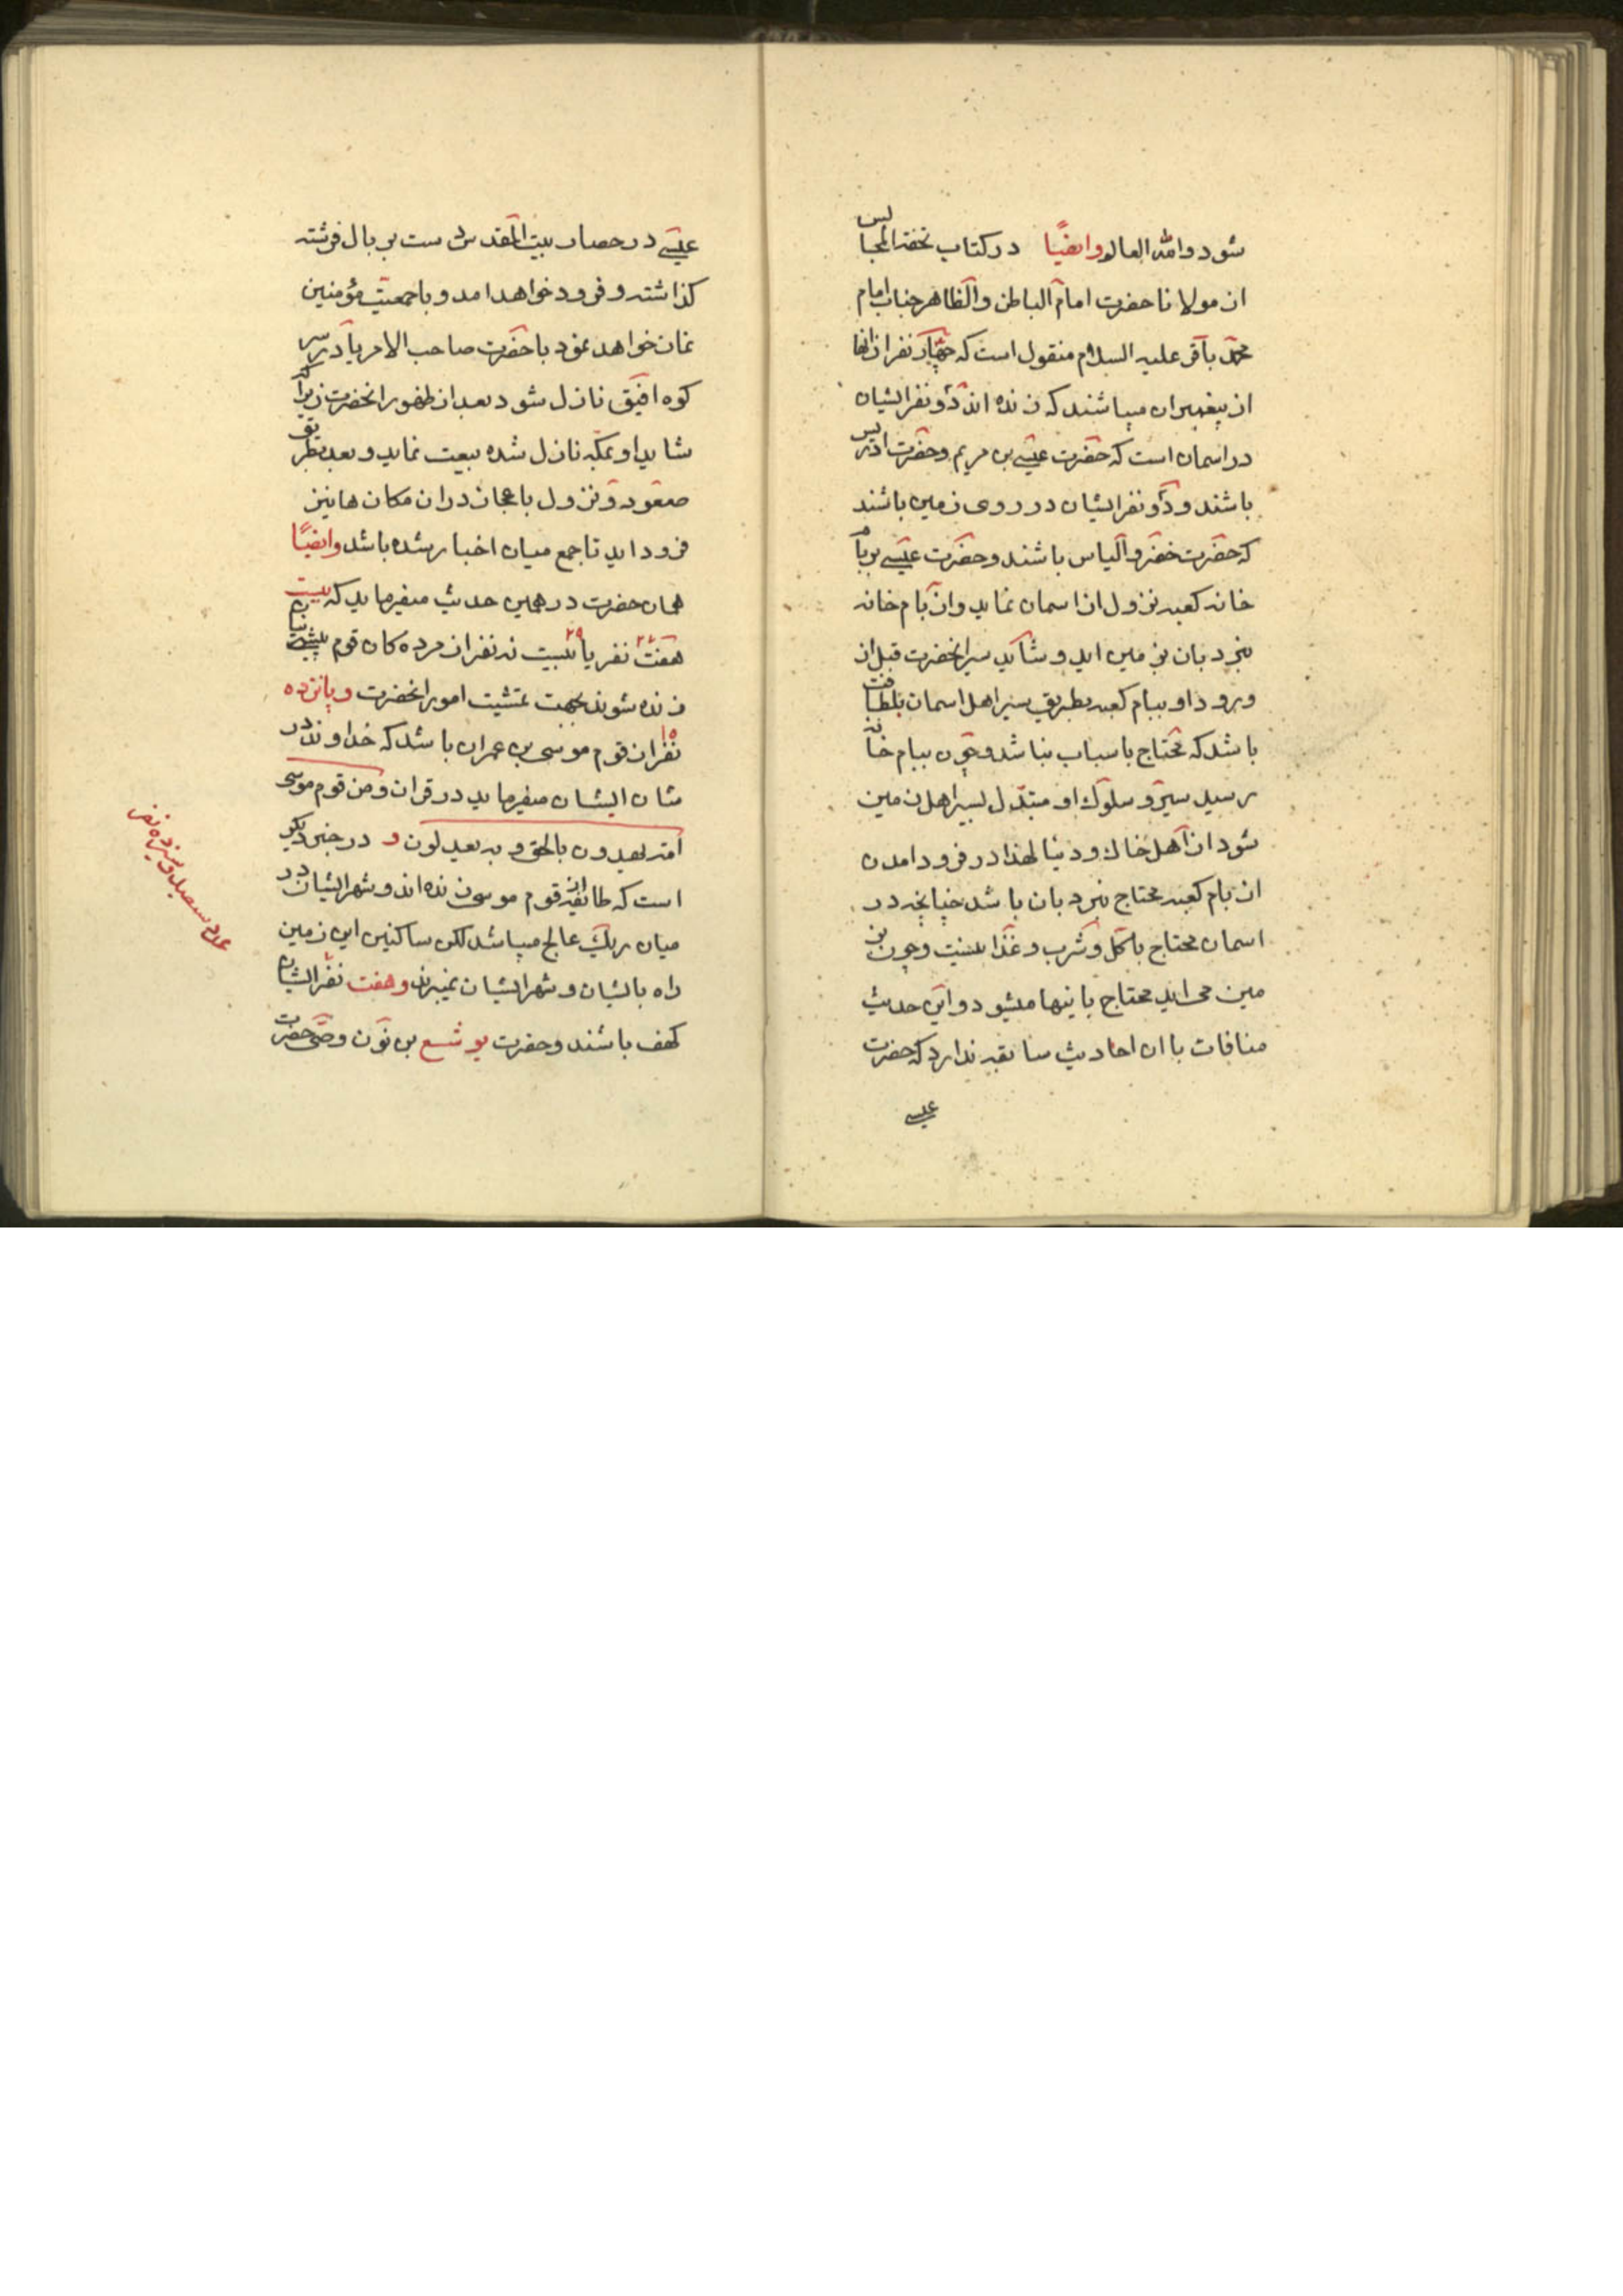 شود والله العالم وایضًا در کتاب تحفة المجالس
از مولانا حضرت امام الباطن والظاهر جناب امام
محمد باقر علیه السلام منقول است که چهار نفر از انها
از پیغمبران میباشند که زنده اند دو نفر ایشان
در اسمان است که حضرت عیسی بن مریم وحضرت ادریس
باشند ودو نفر ایشان در روی زمین باشند
که حضرت خضر والیاس باشند وحضرت عیسی بر بام
خانه کعبه نزول از اسمان نماید وازبام خانه
بنردبان بزمین اید وشاید سیرانحضرت قبل از
ورود او ببام کعبه بطریق سیر اهل اسمان بلطافت
باشد که محتاج باسباب نباشد وچون ببام خانه
رسید سیر وسلوک او متبدل بسیر اهل زمین
شود از اهل خاک ودنیا لهذا در فرود امدن
از بام کعبه محتاج بنردبان باشد چنانچه در
اسمان محتاج باکل وشرب وغذا نیست وچون بز
مین می اید محتاج باینها میشود واین حدیث
منافات با ان احادیث سابقه ندارد که حضرت
عیسی
عیسی در حصار بیت المقدس دست بر بال فرشته
کذاشته وفرود خواهد امد وباجمعیت مؤمنین
نماز خواهد نمود باحضرت صاحب الامر یا در سر
کوه افیق نازل شود بعد از ظهور انحضرت زیرا که
شاید او بمکه نازل شده بیعت نماید وبعد بطریق
صعود ونزول باعجاز در ان مکان ها نیز
فرود اید تا جمع میان اخبار شده باشد وایضًا
همان حضرت در همین حدیث میفرماید که بیست
هفت ۲۷ نفر یا بیست نه ۲۹ نفر از مرده کان قوم پیش بیایم
زنده شوند بجهت تمشیت امور انحضرت وپانزده
۱۵ نفر از قوم موسی بن عمران باشد که خداوند در
شان ایشان میفرماید در قران ومن قوم موسی
امة یهدون بالحق وبه یعدلون و در خبر دیکر
است که طایفه از قوم موسی زنده اند وشهر ایشان در
میان ریک عالج میباشد لکن ساکنین این زمین
راه بایشان وشهر ایشان نمیبرند وهفت ۷ نفر ایشان
کهف باشند وحضرت یوشع بن نون وصی حضرت
عدد سیصد وسیزده نفر